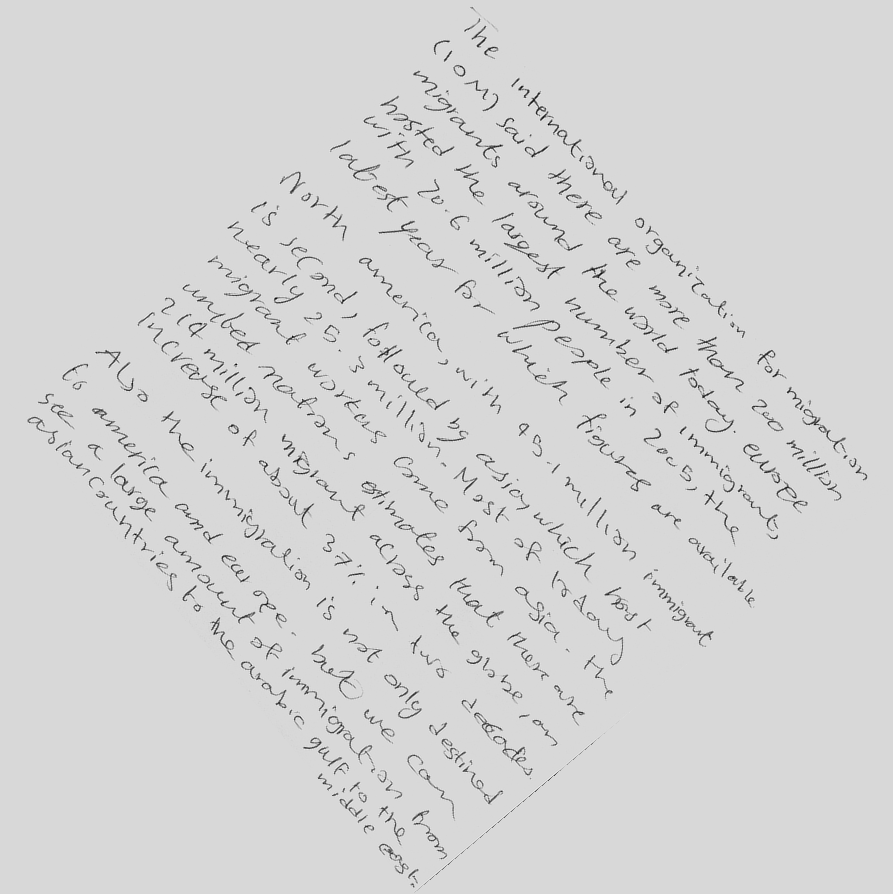 The international organization for migration
(IOM) said there are more than 200 million
migrants around the world today. europe
hosted the largest number of immigrants,
with 70.6 million people in 2005, the
latest year for which figures are available
North america, with 45.1 million immigrant
is second, followed by asia, which host
nearly 25.3 million. Most of today
migrant workers come from asia. the
united nations estimates that there are
214 million migrant across the globe, an
increase of about 37% in two decades.
Also the immigration is not only destined
to america and europe. but we can
see a large amount of immigration from
asian countries to the arabic gulf to the
middle east.